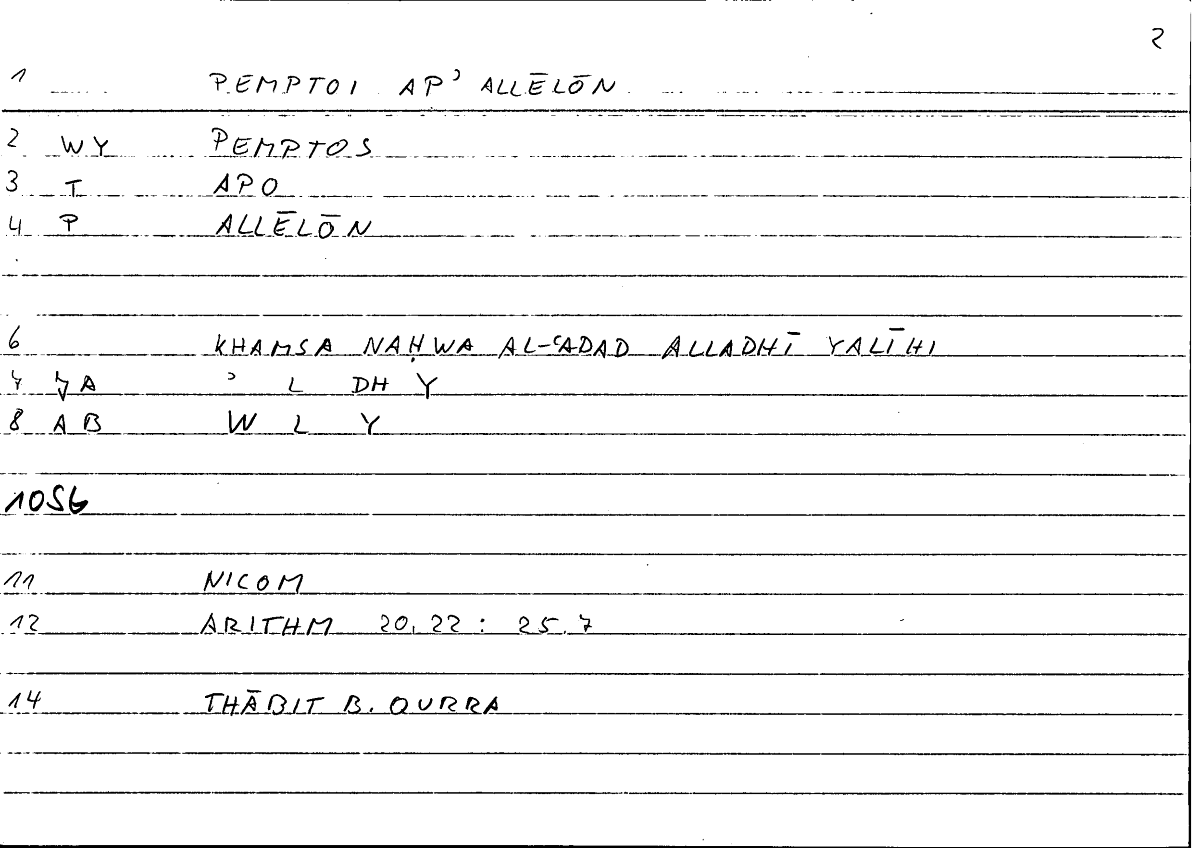 2
1 PEMPTOI AP’ ALLĒLŌN
2 WY PEMPTOS
3 T APO
4 P ALLĒLŌN
6 KHAMSA NAḤWA AL-ʿADAD ALLADHĪ YALĪHI
7 7A ʾ L DH Y
8 AB W L Y
10 SG
11 NICOM
12 ARITHM 20.22 : 25.7
14 THĀBIT B. QURRA